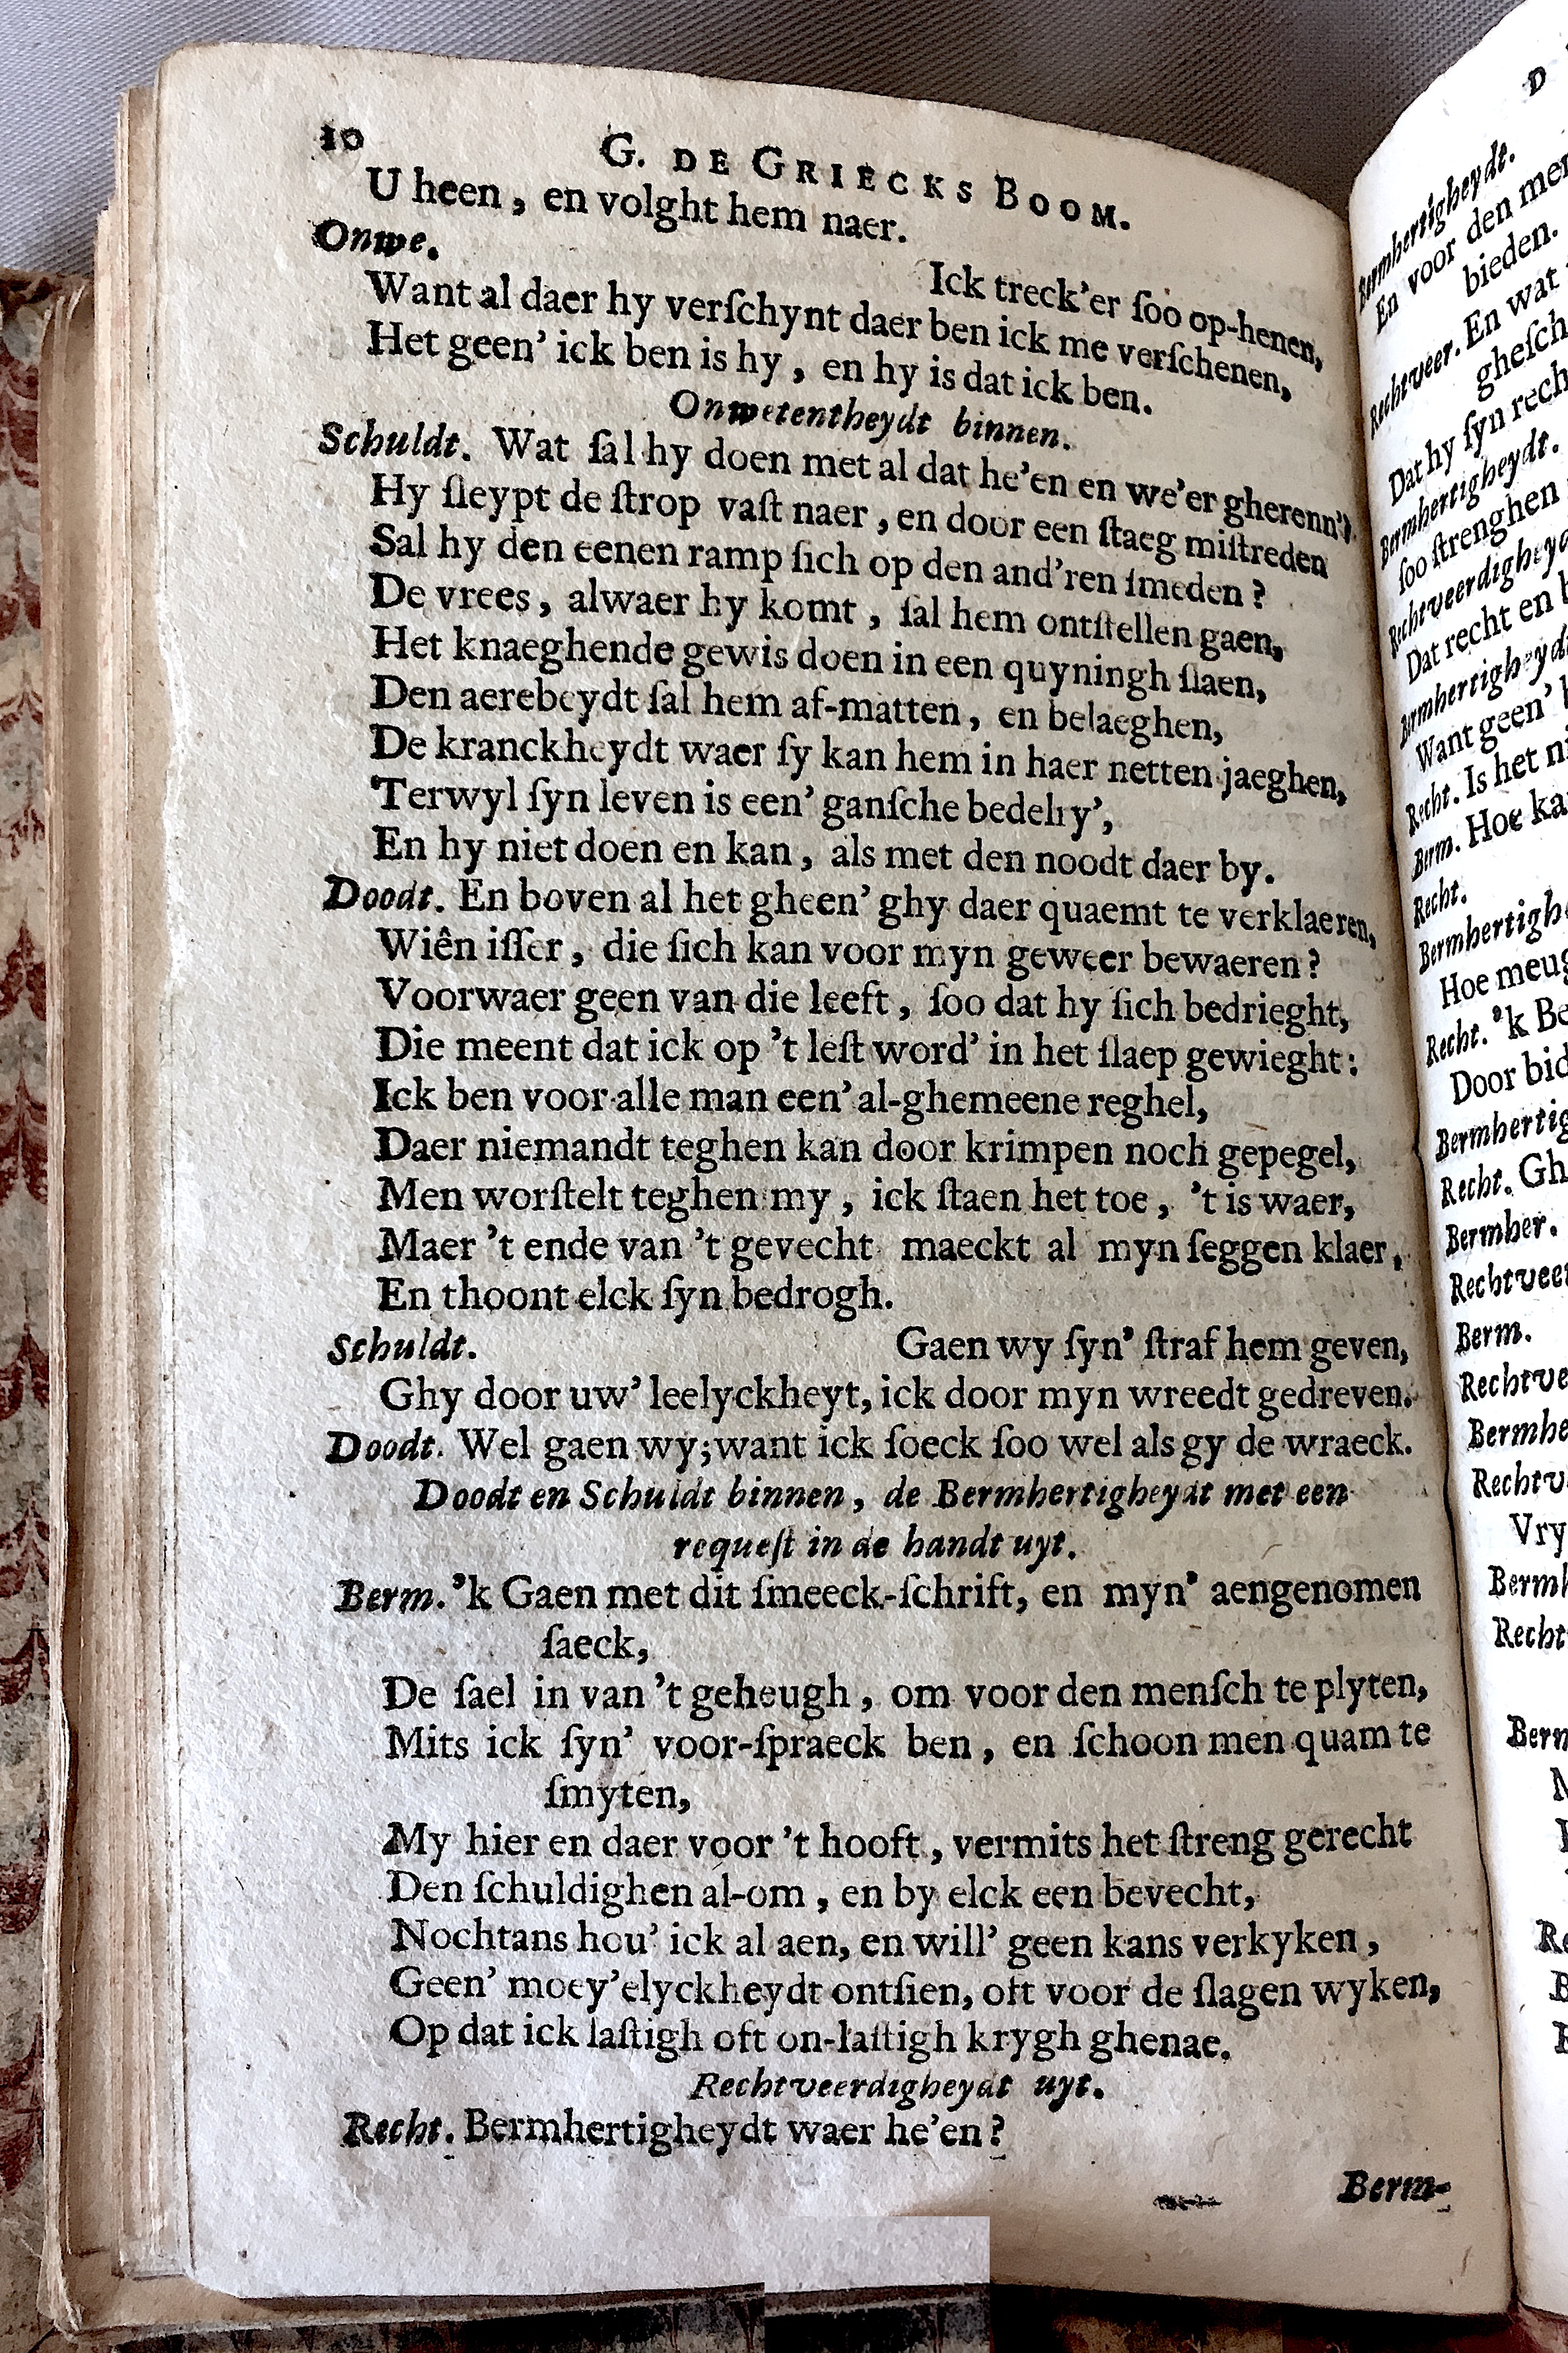 10 G. DE GRIECKS BOOM.
U heen, en volght hem naer.
Onwe.
Ick treck'er ſoo op-henen,
Want al daer hy verſchynt daer ben ick me verſchenen,
Het geen' ick ben is hy, en hy is dat ick ben.
Onwetentheydt binnen.
Schuldt. Wat ſal hy doen met al dat he'en en we'er gherenn'?
Hy ſleypt de ſtrop vaſt naer, en door een ſtaeg miſtreden
Sal hy den eenen ramp ſich op den and'ren ſmeden?
De vrees, alwaer hy komt, ſal hem ontſtellen gaen,
Het knaeghende gewis doen in een quyningh ſlaen,
Den aerebeydt ſal hem af-matten, en belaeghen,
De kranckheydt waer ſy kan hem in haer netten jaeghen,
Terwyl ſyn leven is een' ganſche bedelry',
En hy niet doen en kan, als met den noodt daer by.
Doodt. En boven al het gheen' ghy daer quaemt te verklaeren,
Wiên iſſer, die ſich kan voor myn geweer bewaeren?
Voorwaer geen van die leeft, ſoo dat hy ſich bedrieght,
Die meent dat ick op 't leſt word' in het ſlaep gewieght:
Ick ben voor alle man een' al-ghemeene reghel,
Daer niemandt teghen kan door krimpen noch gepegel,
Men worſtelt teghen my, ick ſtaen het toe, 't is waer,
Maer 't ende van 't gevecht maeckt al myn ſeggen klaer,
En thoont elck ſyn bedrogh.
Schuldt. Gaen wy ſyn' ſtraf hem geven,
Ghy door uw' leelyckheyt, ick door myn wreedt gedreven.
Doodt. Wel gaen wy; want ick ſoeck ſoo wel als gy de wraeck.
Doodt en Schuldt binnen, de Bermhertigheydt met een
requeſt in de handt uyt.
Berm. 'k Gaen met dit ſmeeck-ſchrift, en myn' aengenomen
ſaeck,
De ſael in van 't geheugh, om voor den menſch te plyten,
Mits ick ſyn' voor-ſpraeck ben, en ſchoon men quam te
ſmyten,
My hier en daer voor 't hooft, vermits het ſtreng gerecht
Den ſchuldighen al-om, en by elck een bevecht,
Nochtans hou' ick al aen, en will' geen kans verkyken,
Geen' moey'elyckheydt ontſien, oft voor de ſlagen wyken,
Op dat ick laſtigh oft on-laſtigh krygh ghenae.
Rechtveerdigheydt uyt.
Recht. Bermhertigheydt waer he'en?
Berm-
D
Bermhertigheydt.
En voor den
bieden.
Rechtveer. En wat
Dat hy ſyn
Bermhertigheydt.
ſoo ſtrenghen
Dat recht en
Want geen'
Recht. Is het
Berm. Hoe
Recht.
Hoe
Recht. 'k
Door
Recht.
Bermher.
Berm.
Vry